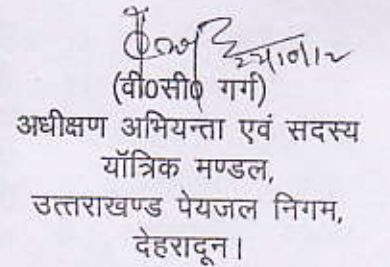 (वी०सी० गर्ग)
अधीक्षण अभियन्ता एवं सदस्य
यॉत्रिक मण्डल,
उत्तराखण्ड पेयजल निगम,
देहरादून।